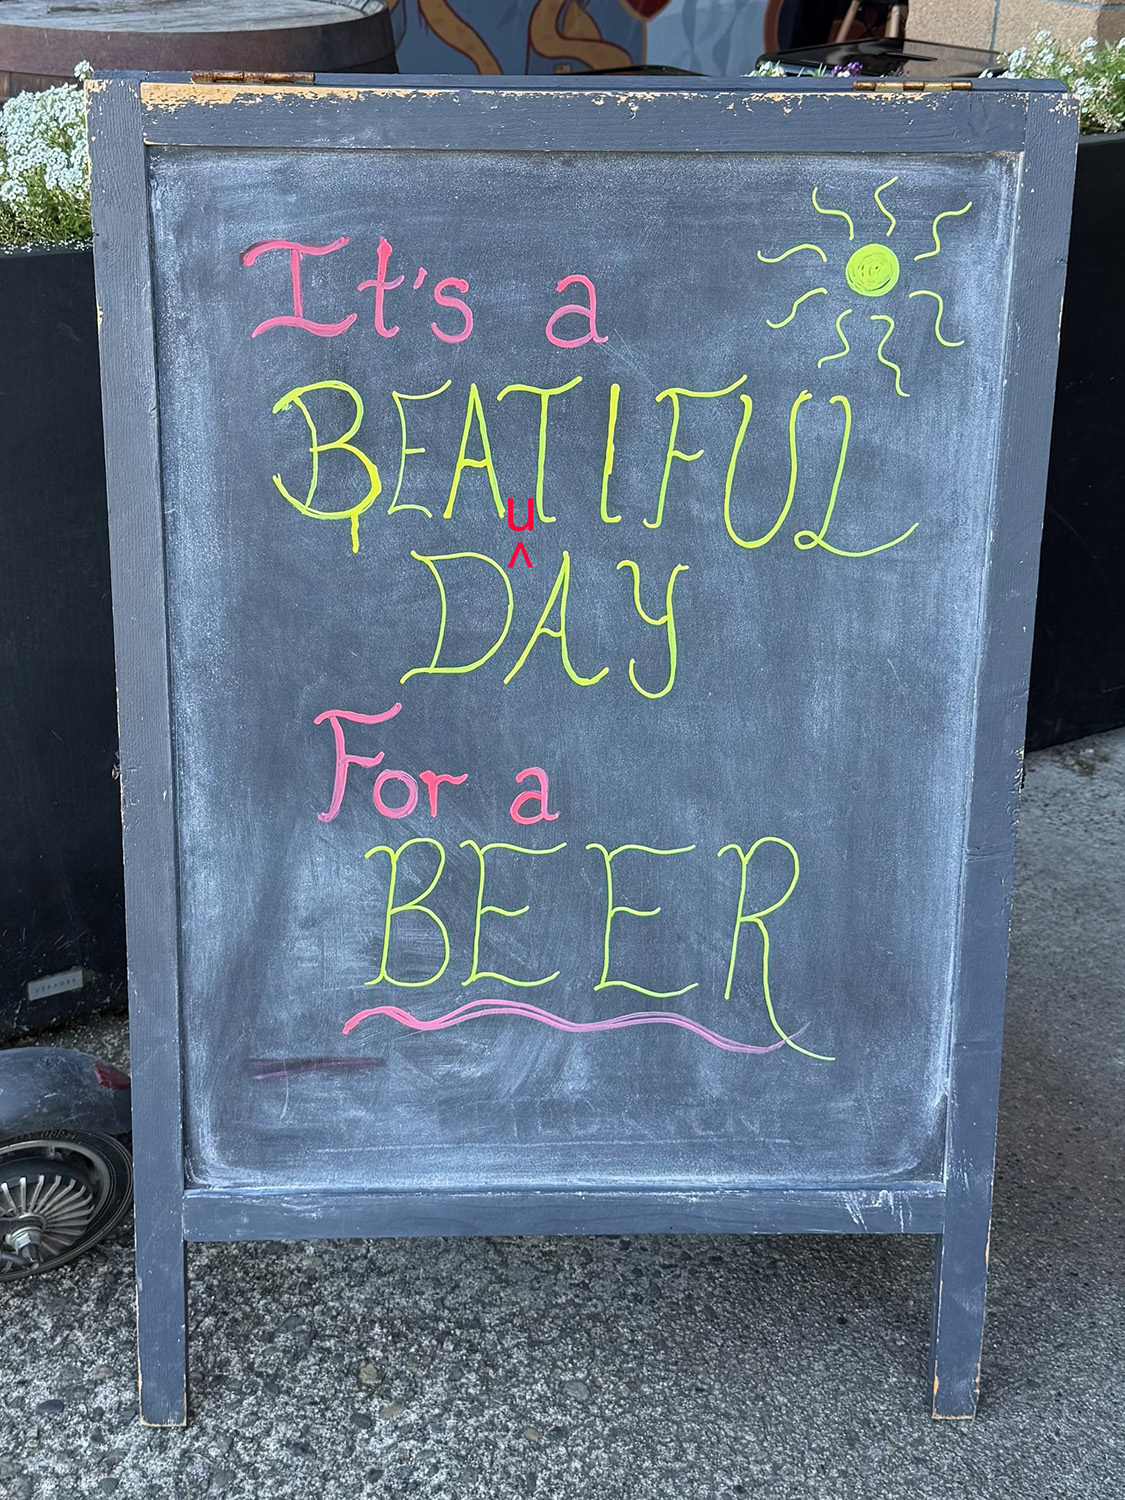 It's a
BEATIFUL
u
^
DAY
For a
BEER